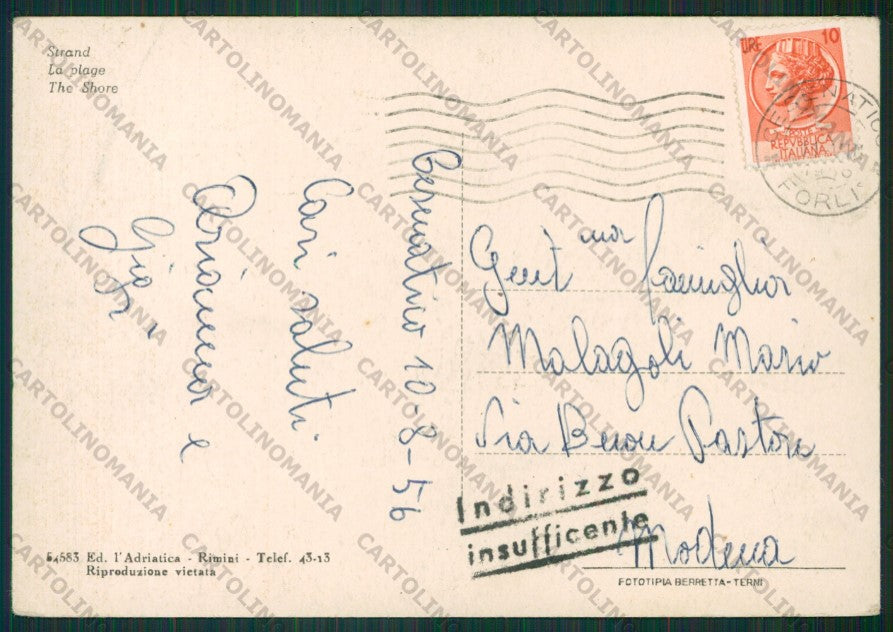 Strand
La plage
The Shore
LIRE 10
REPVBBLICA
ITALIANA
FORLI
Cesenatico 10-8-56
Cari saluti
Arianna e
Gent ma famiglia
Malagoli Mario
Via Buon Pastore
Modena
Indirizzo
insufficente
54583 Ed. l'Adriatica - Rimini - Telef. 43-13
Riproduzione vietata
FOTOTIPIA BERRETTA - TERNI
CARTOLINOMANIA